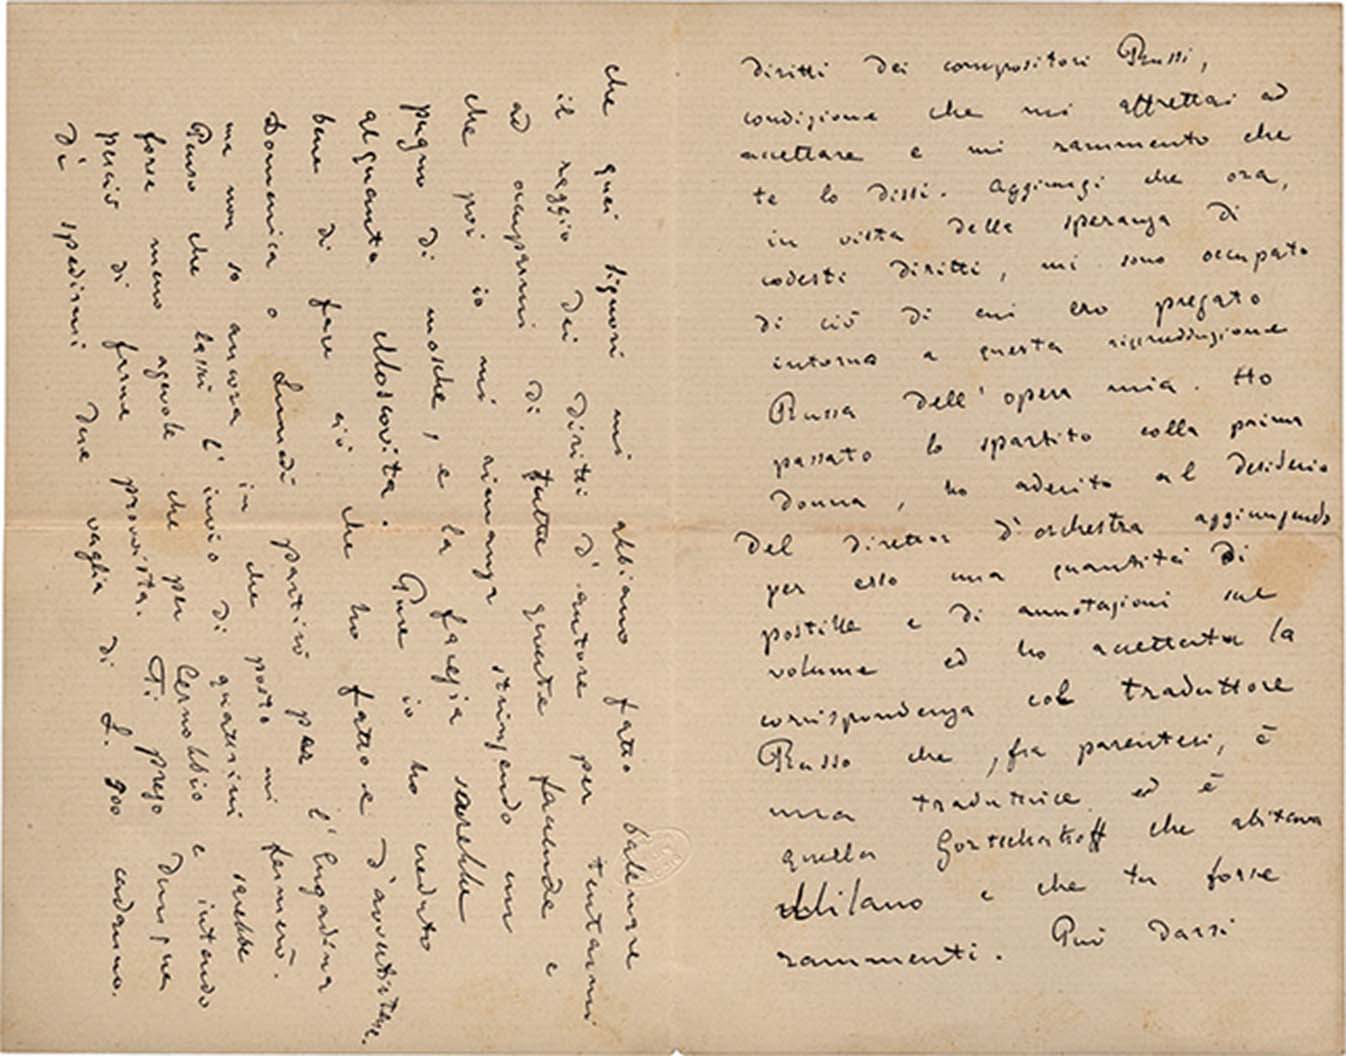 diritti dei compositori Russi,
condizione che mi affrettai ad
accettare e mi rammento che
te lo dissi. Aggiungi che ora,
in vista della speranza di
codesti diritti, mi sono occupato
di ciò di cui ero pregato
intorno a questa riproduzione
Russa dell'opera mia. Ho
passato lo spartito colla prima
donna, ho aderito al desiderio
del direttor d'orchestra aggiungendo
per esso una quantità di
postille e di annotazioni sul
volume ed ho accettata la
corrispondenza col traduttore
Russo che, fra parentesi, è
una traduttrice ed è
quella Gortschakoff che abitava
Milano e che tu forse
rammenti. Può darsi
che quei signori mi abbiano fatto balenare
il raggio dei diritti d'autore per tentarmi
ad occuparmi di tutte queste faccende e
che poi io mi rimanga stringendo un
pugno di mosche, e la facezia sarebbe
alquanto Moscovita. Pure io ho creduto
bene di fare ciò che ho fatto e d'avvertirtene.
Domenica o Lunedì partirò per l'Engadina
ma non so ancora in che posto mi fermerò.
Penso che lassù l'invio di quattrini sarebbe
forse meno agevole che per Cernobbio e intendo
perciò di farne provvista. Ti prego dunque
di spedirmi due vaglia di L. 900 cadauno.